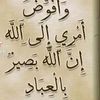 وَأُفَوِّضُ
أَمْرِي إِلَى ٱللَّهِ
إِنَّ ٱللَّهَ بَصِيرٌ
بِالْعِبَادِ